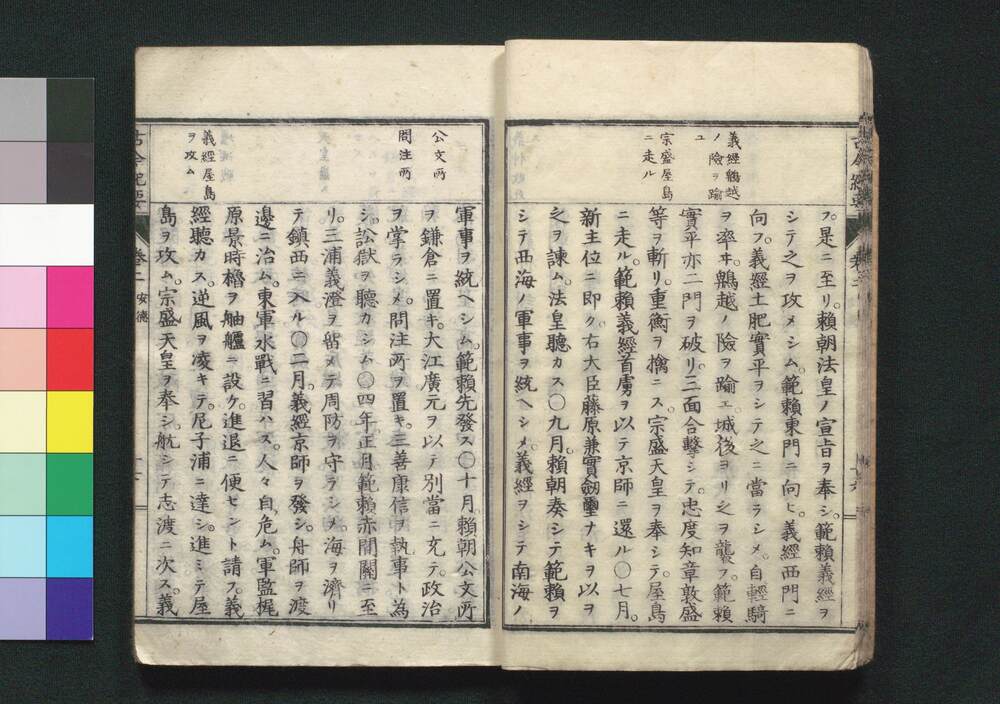 義經鵯越
ノ險ヲ踰
ユ
宗盛屋島
ニ走ル
フ。是ニ至リ。賴朝法皇ノ宣旨ヲ奉シ。範賴義經ヲ
シテ之ヲ攻メシム。範賴東門ニ向ヒ。義經西門ニ
向フ。義經土肥實平ヲシテ之ニ當ラシメ。自輕騎
ヲ率ヰ。鵯越ノ險ヲ踰エ。城後ヨリ之ヲ襲フ。範賴
實平亦二門ヲ破リ。三面合擊シテ。忠度知章敦盛
等ヲ斬リ。重衡ヲ擒ニス。宗盛天皇ヲ奉シテ。屋島
ニ走ル。範賴義經首虜ヲ以テ京師ニ還ル〇七月。
新主位ニ即ク。右大臣藤原兼實劔璽ナキヲ以ヲ
之ヲ諫ム。法皇聽カス〇九月。賴朝奏シテ範賴ヲ
シテ西海ノ軍事ヲ統ヘシメ。義經ヲシテ南海ノ
公文所
問注所
義經屋島
ヲ攻ム
軍事ヲ統ヘシム。範賴先發ス〇十月。賴朝公文所
ヲ鎌倉ニ置キ。大江廣元ヲ以テ別當ニ充テ。政治
ヲ掌ラシメ。問注所ヲ置キ。三善康信ヲ執事ト為
シ。訟獄ヲ聽カシム〇四年正月範賴赤間關ニ至
リ。三浦義澄ヲ留メテ周防ヲ守ラシメ。海ヲ濟リ
テ鎮西ニ入ル〇二月。義經京師ヲ發シ。舟師ヲ渡
邊ニ治ム。東軍水戰ニ習ハス。人々自危ム。軍監梶
原景時櫓ヲ舳艫ニ設ケ。進退ニ便セント請フ。義
經聽カス。逆風ヲ凌キテ。尼子浦ニ達シ。進ミテ屋
島ヲ攻ム。宗盛天皇ヲ奉シ。航シテ志渡ニ次ス。義
卷二
安德